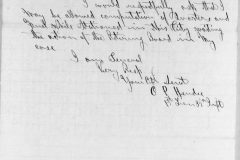 I would respectfully ask that I
may be allowed commutation of Quarters and
fuel while stationed in this City waiting
the action of the Retiring Board in my
case
I am General
Very Resp
Your Obt Servt